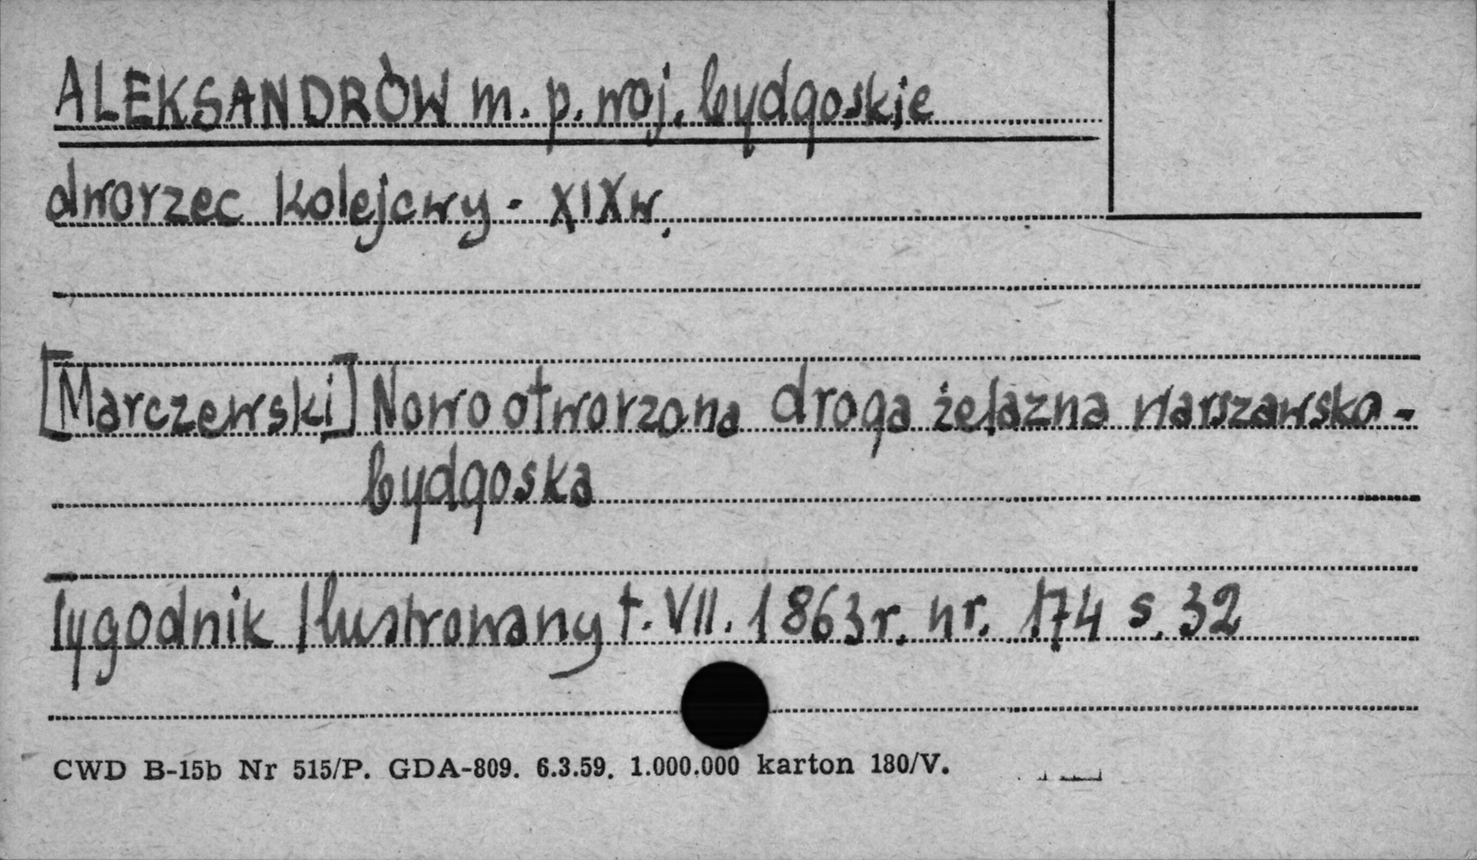 ALEKSANDRÓW m. p. woj. bydgoskie
dworzec kolejowy - XIX w.
[Marczewski] Nowo otworzona droga żelazna warszawsko-
bydgoska
Tygodnik Ilustrowany t. VII. 1863 r. nr. 174 s. 32
CWD B-15b Nr 515/P. GDA-809. 6.3.59. 1.000.000 karton 180/V.